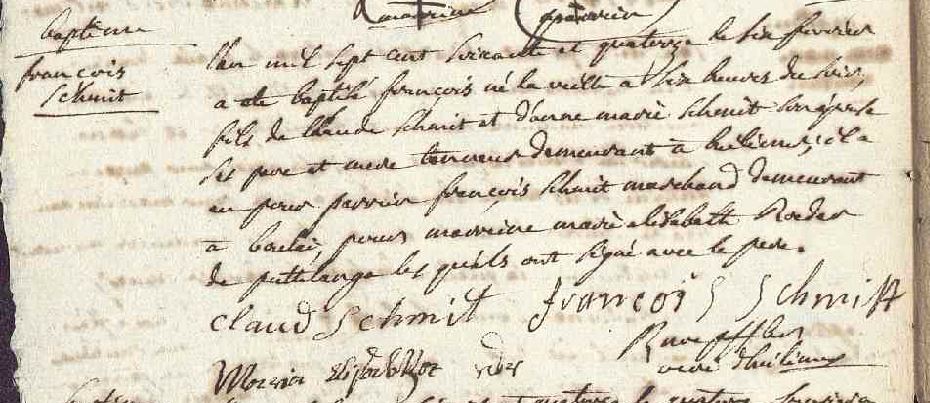 marraine parrain
baptême
françois
schmit
l'an mil sept cent soixante et quatorze le six fevrier
a ete baptisé françois né la veille a six heures du soir,
fils de claude schmit et d'anne marie schmit son épouse
ses pere et mere demeurant a il a
eu pour parrain françois schmit marchand demeurant
a boulai, pour marraine marie elisabeth Roeder
de puttelange les quels ont signé avec le pere.
claud schmit françois schmitt
Maria Roe der
curé